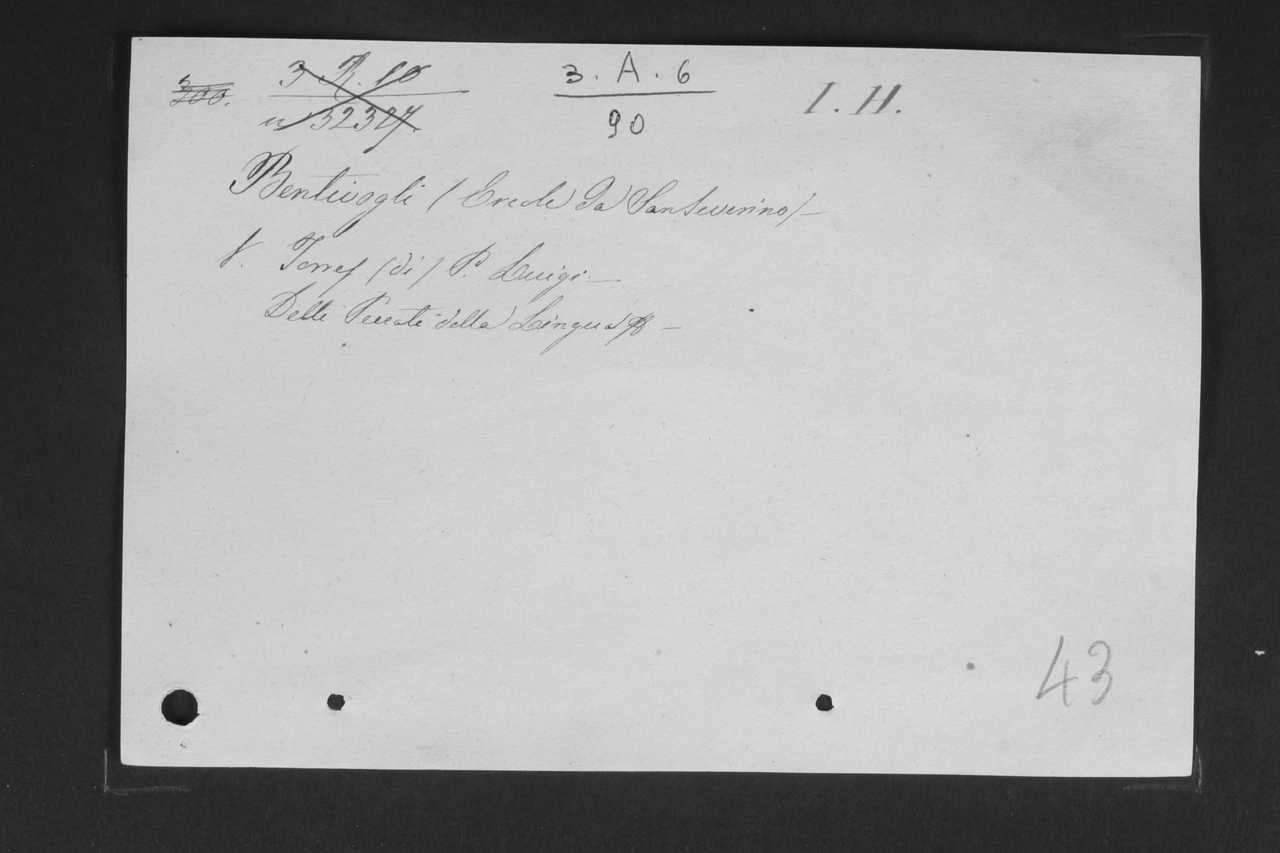 300. 3. R. 10 3. A. 6 I. H.
n 32327 90
Bentivogli (Ercole da Sanseverino) —
V. Torres (di) P. Luigi —
Delli Peccati della Lingua —
43